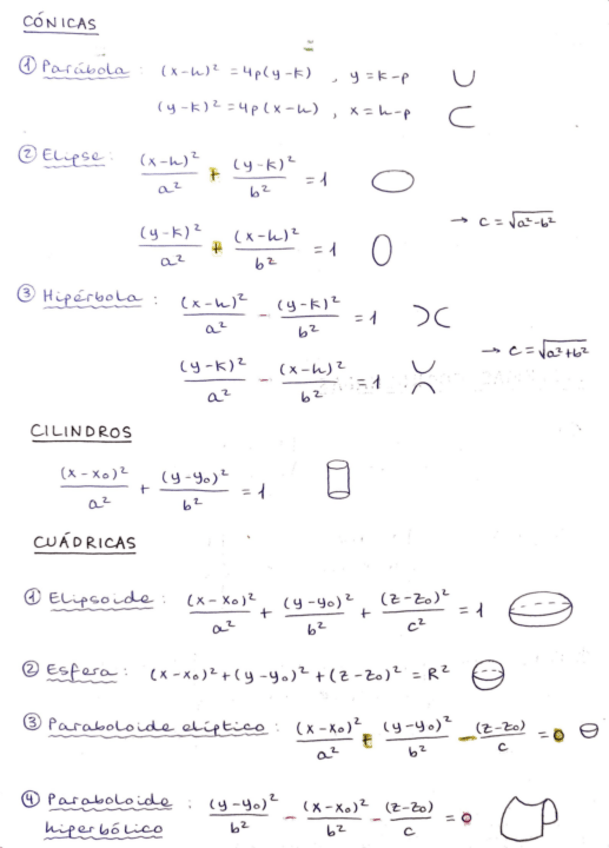 CÓNICAS
① Parábola : (x-h)² = 4p(y-k) , y = k-p
(y-k)² = 4p(x-h) , x = h-p
② Elipse : (x-h)²/a² + (y-k)²/b² = 1
(y-k)²/a² + (x-h)²/b² = 1 → c = √a²-b²
③ Hipérbola : (x-h)²/a² - (y-k)²/b² = 1
(y-k)²/a² - (x-h)²/b² = 1 → c = √a²+b²
CILINDROS
(x-x₀)²/a² + (y-y₀)²/b² = 1
CUÁDRICAS
① Elipsoide : (x-x₀)²/a² + (y-y₀)²/b² + (z-z₀)²/c² = 1
② Esfera : (x-x₀)² + (y-y₀)² + (z-z₀)² = R²
③ Paraboloide elíptico : (x-x₀)²/a² + (y-y₀)²/b² - (z-z₀)/c = 0
④ Paraboloide hiperbólico : (y-y₀)²/b² - (x-x₀)²/b² - (z-z₀)/c = 0